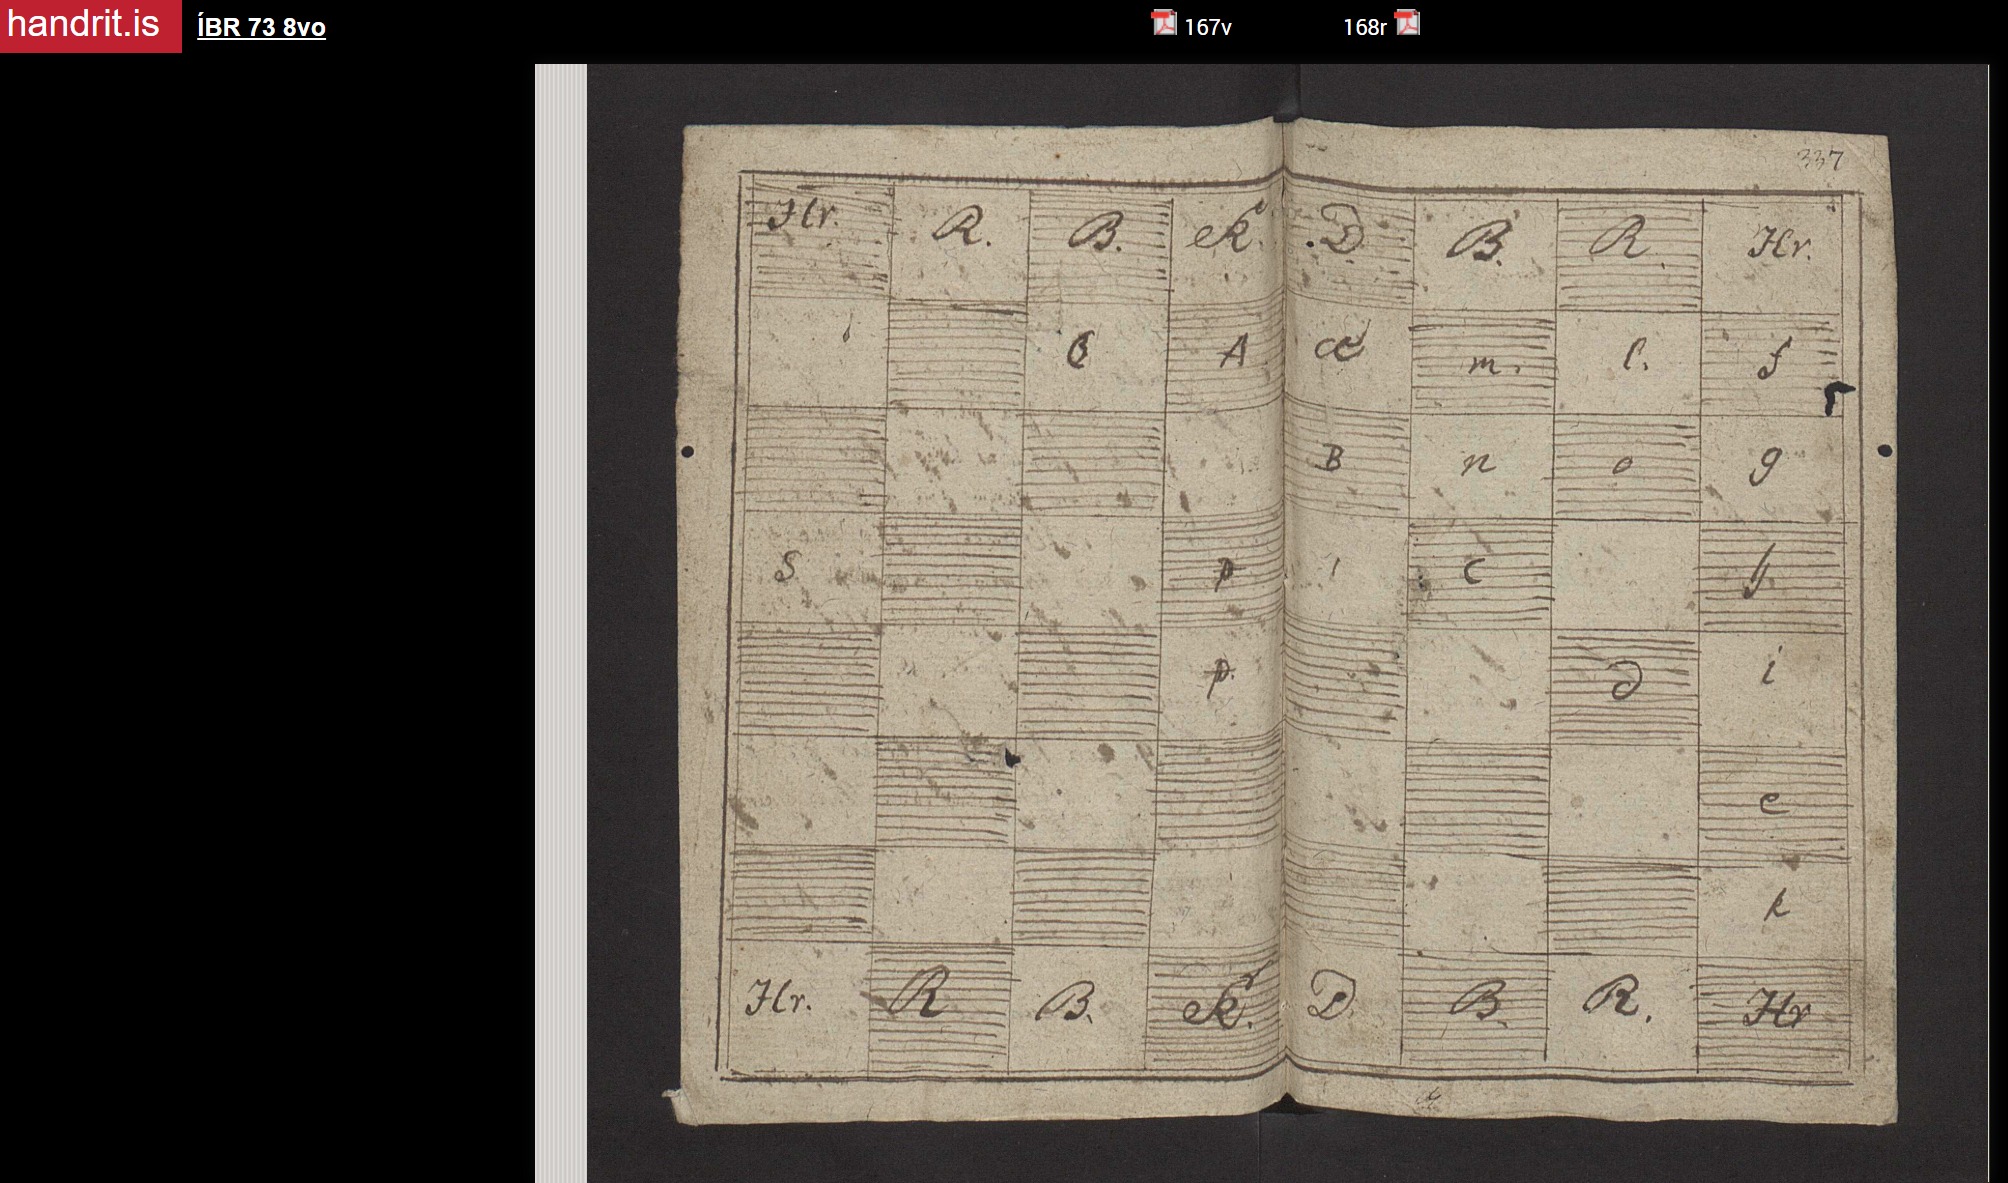 handrit.is ÍBR 73 8vo 167v 168r
337
Hr. R. B. K. D B. R Hr.
A m. l. f
B n o g
S p c
p. d i
e
k
Hr. R B. K. D B. R. Hr